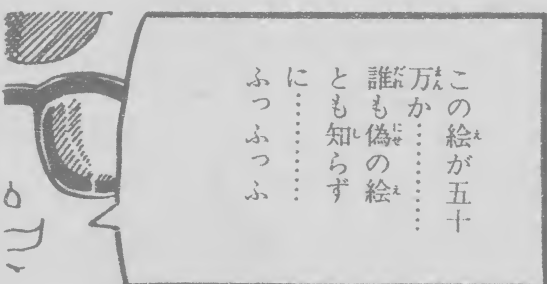 この絵が五十
万か………
誰も偽の絵
とも知らず
に………
ふっふっふ